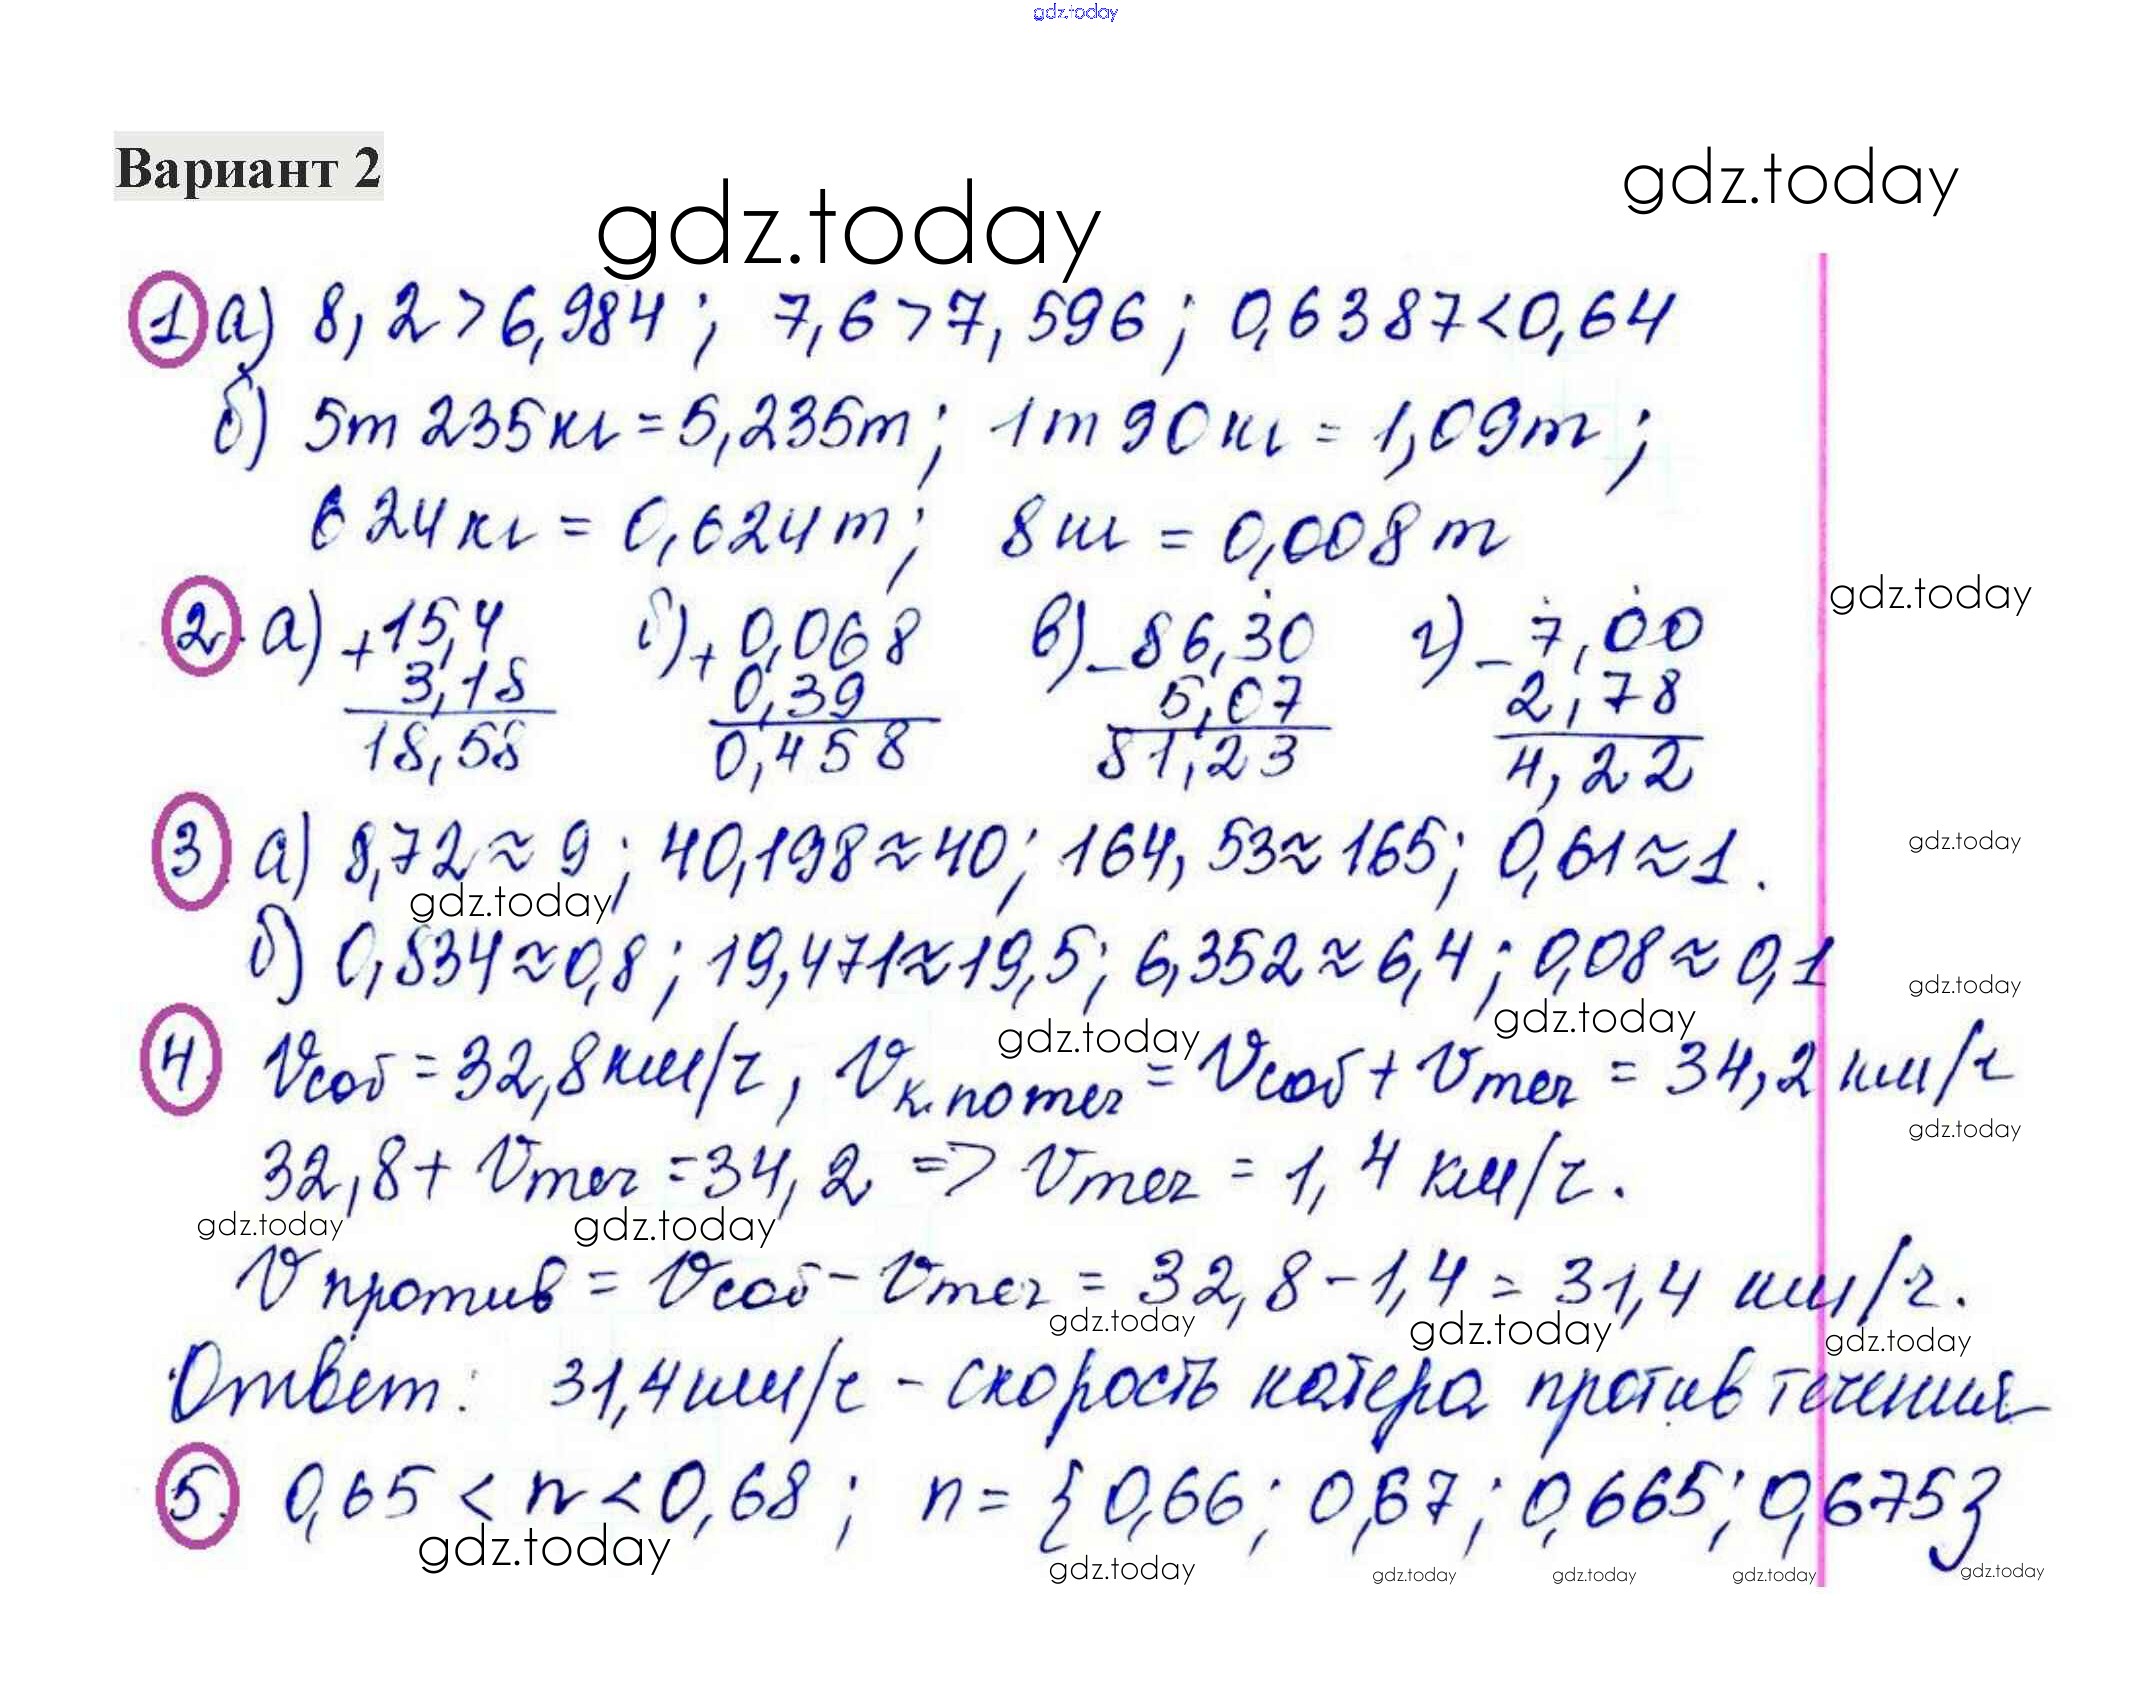 gdz.today
Вариант 2
gdz.today
gdz.today
1 а) 8,2 > 6,984; 7,6 > 7,596; 0,6387 < 0,64
б) 5т 235кг = 5,235т; 1т 90кг = 1,09т;
624кг = 0,624т; 8кг = 0,008т
2. а) + 15,4 б) + 0,068 в) - 86,30 г) - 7,00
gdz.today
3,18 0,39 5,07 2,78
18,58 0,458 81,23 4,22
3. а) 8,72 ≈ 9; 40,198 ≈ 40; 164,53 ≈ 165; 0,61 ≈ 1.
gdz.today
gdz.today
б) 0,834 ≈ 0,8; 19,471 ≈ 19,5; 6,352 ≈ 6,4; 0,08 ≈ 0,1
gdz.today
gdz.today
gdz.today
4. Vсоб = 32,8км/ч, Vк.потеч = Vсоб + Vтеч = 34,2 км/ч
gdz.today
32,8 + Vтеч = 34,2 => Vтеч = 1,4 км/ч.
gdz.today
gdz.today
Vпротив = Vсоб - Vтеч = 32,8 - 1,4 = 31,4 км/ч.
gdz.today
gdz.today
gdz.today
Ответ: 31,4км/ч - скорость катера против течения
5. 0,65 < n < 0,68; n = {0,66; 0,67; 0,665; 0,675}
gdz.today
gdz.today
gdz.today
gdz.today
gdz.today
gdz.today